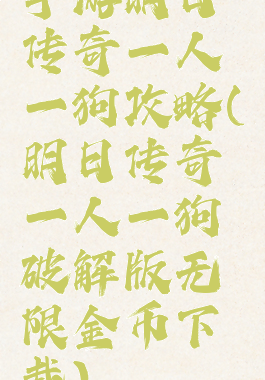 手游明日
传奇一人
一狗攻略(
明日传奇
一人一狗
破解版无
限金币下
载)